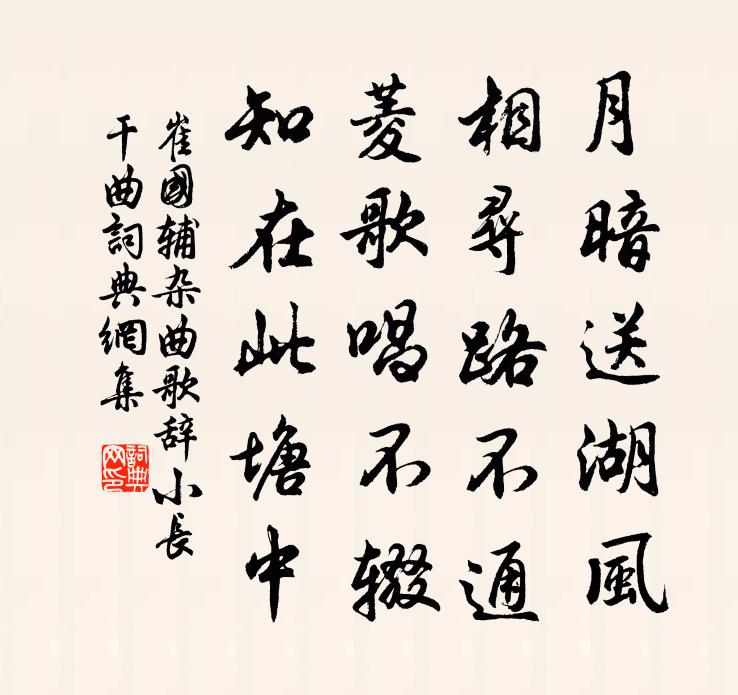 月暗送湖風
相尋路不通
菱歌唱不辍
知在此塘中
崔國辅杂曲歌辞小長
干曲詞典網集
詞典网印